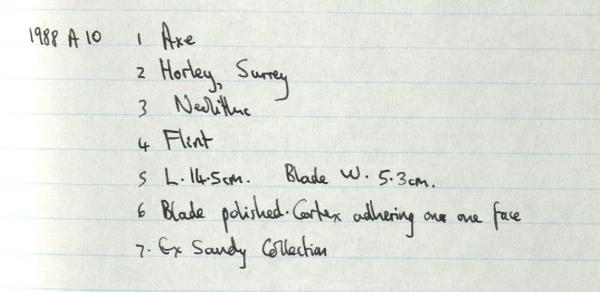 1988 A 10 1 Axe
2 Horley, Surrey
3 Neolithic
4 Flint
5 L. 14.5cm. Blade W. 5.3cm.
6 Blade polished. Cortex adhering one one face
7. Ex Sandy Collection